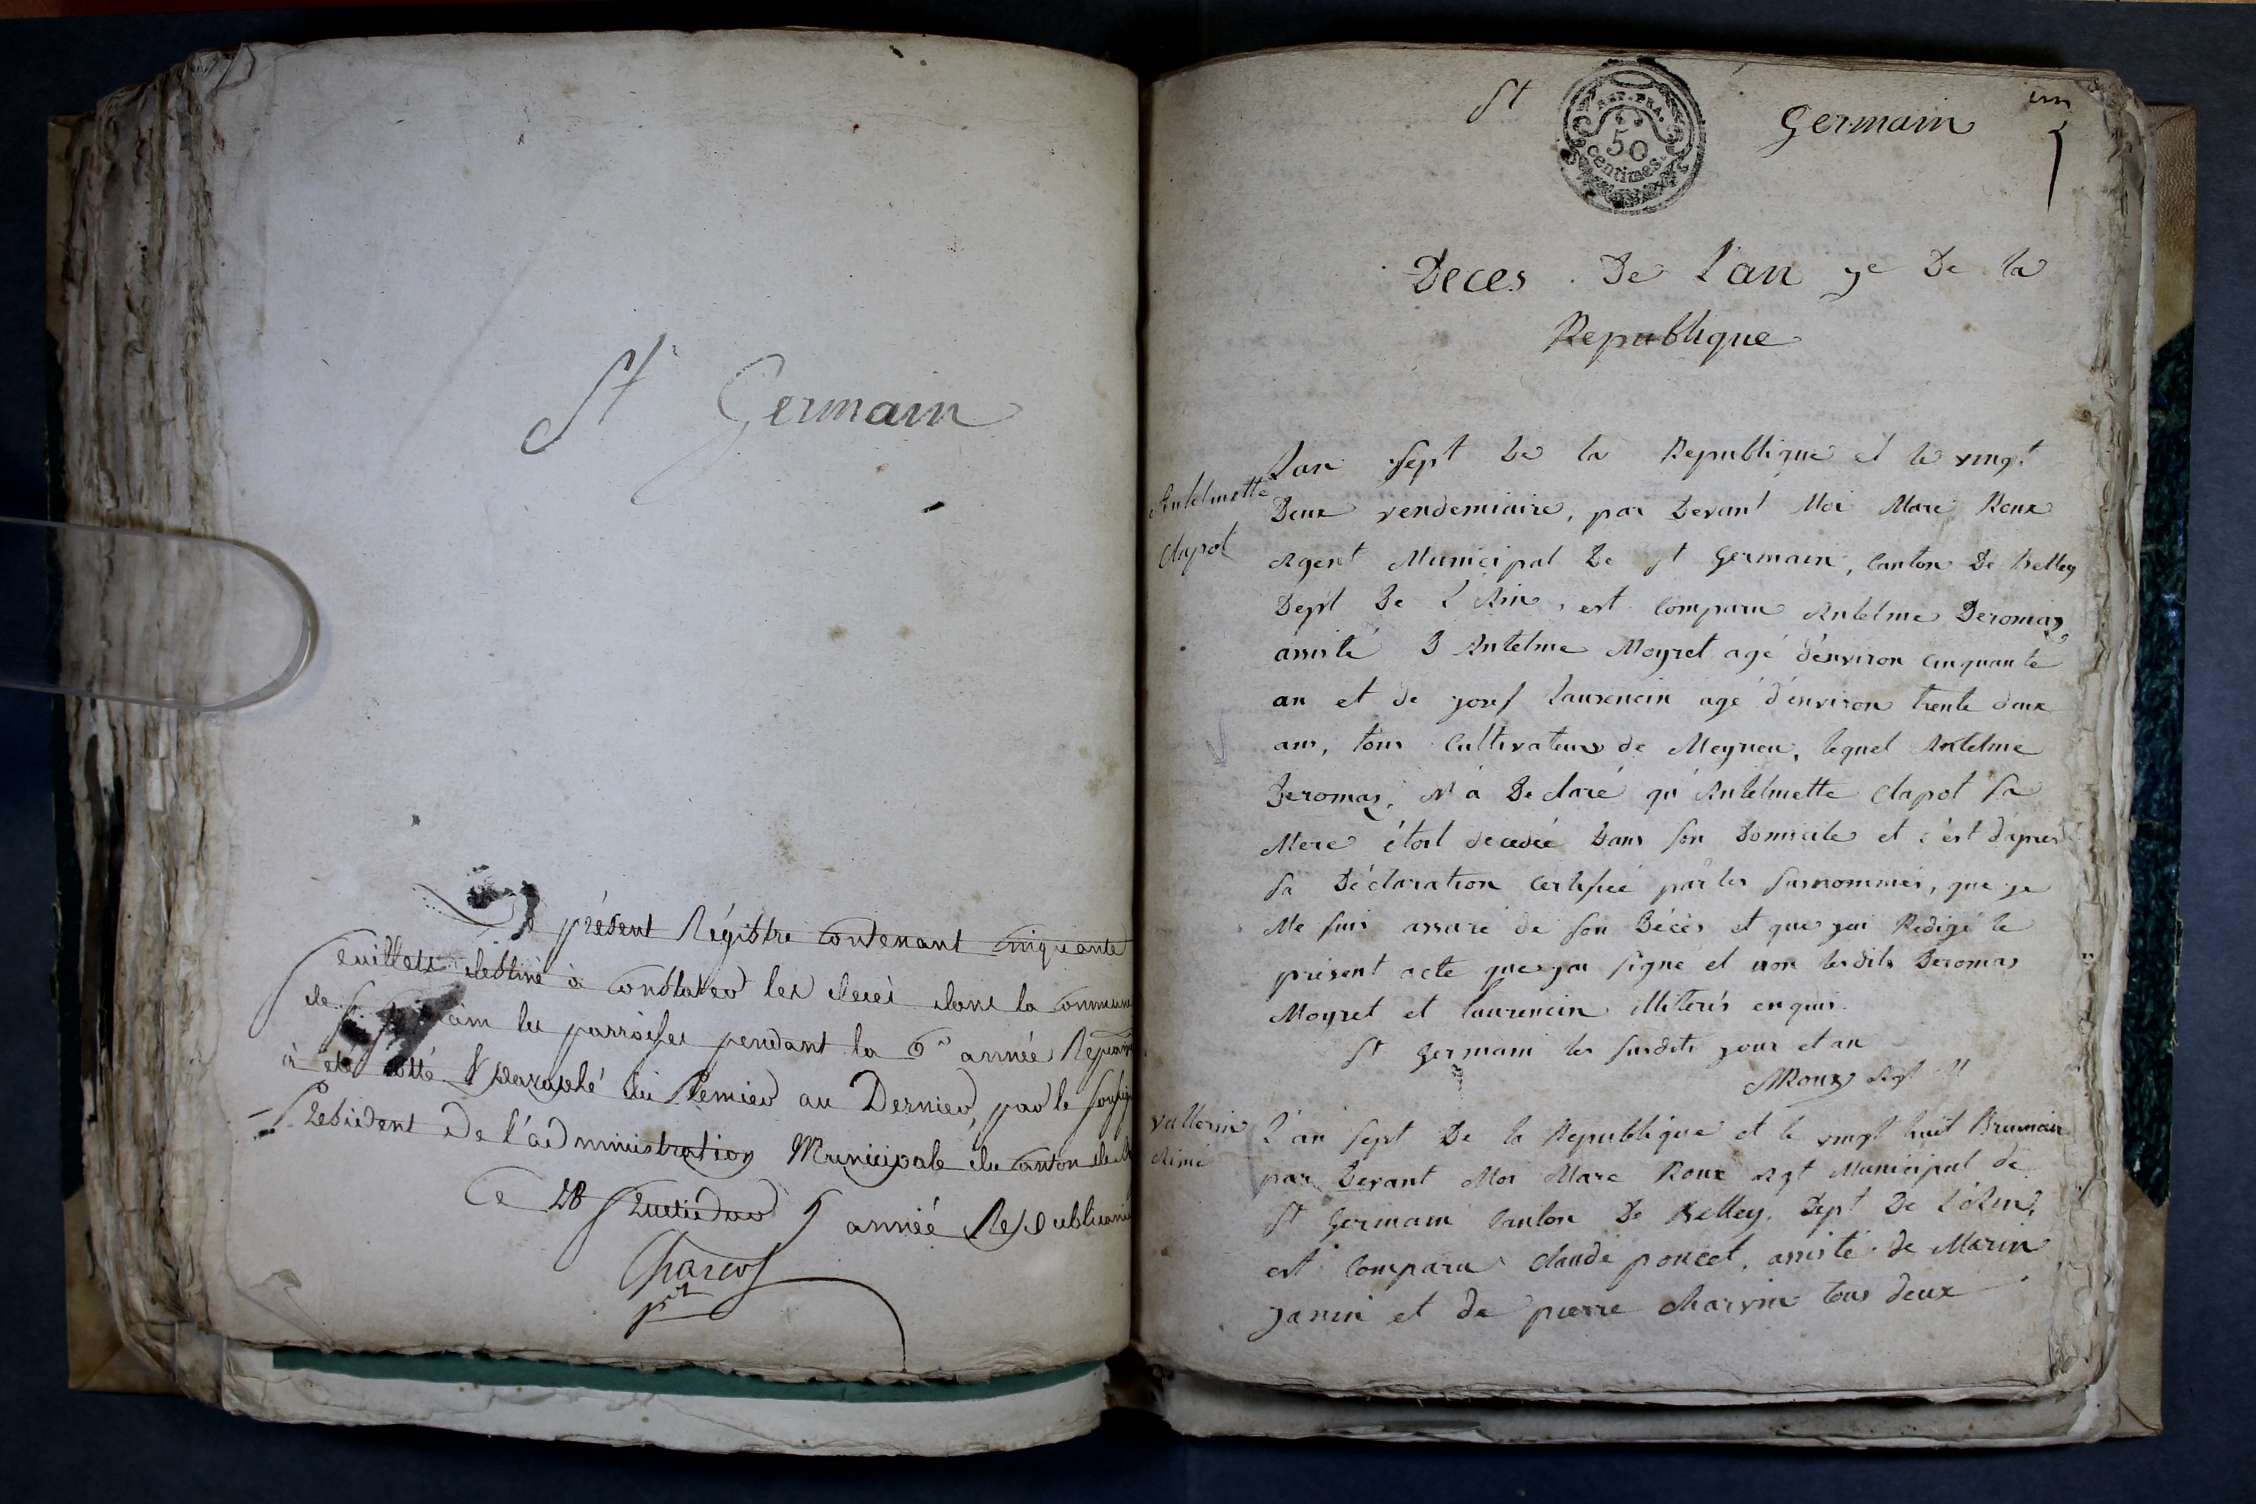 St Germain
Le présent Régistre contenant cinquante
feuillets destiné à constater les decès dans la commune
de St Germain les parroisses pendant la 6e année Republi
à été cotté & paraphé du Premier au Dernier, par le soussig
Président de l'administration Municipale du canton de
Ce 28 fructidor 5 année Republicain
St Germain
un
REP. FRA.
50
centimes
Deces De L'an 7e De la
Republique
Antelmette
Clapot
L'an sept De la Republique et le vingt
Deux vendemiaire, par Devant Moi Marc Roux
Agent Municipal De st Germain, Canton De Belley
Dept De L'Ain, est Comparu Antelme Deromas,
assisté D'Antelme Moyret agé d'environ cinquante
an et de josef laurencin agé d'environ trente deux
ans, tous Cultivateurs de Meyrieu, lequel Antelme
Deromas, M'a Declaré qu'Antelmette Clapot sa
Mere étoit decedée Dans son Domicile et c'est d'après
sa Déclaration Certifiée par les susnommés, que je
Me suis assuré de son Décès et que j'ai Redigé le
présent acte que j'ai signé et non lesdits Deromas
Moyret et laurencin illiterés enquis.
St Germain les susdits jour et an
MRoux Agt M
Vullerin
Aimé
L'an sept De la Republique et le vingt huit Brumaire
par Devant Moi Marc Roux Agt Municipal de
St Germain Canton De Belley, Dept De L'Ain,
est Comparu Claude poncet, assisté de Marin
Janin et de pierre Charvin tous deux